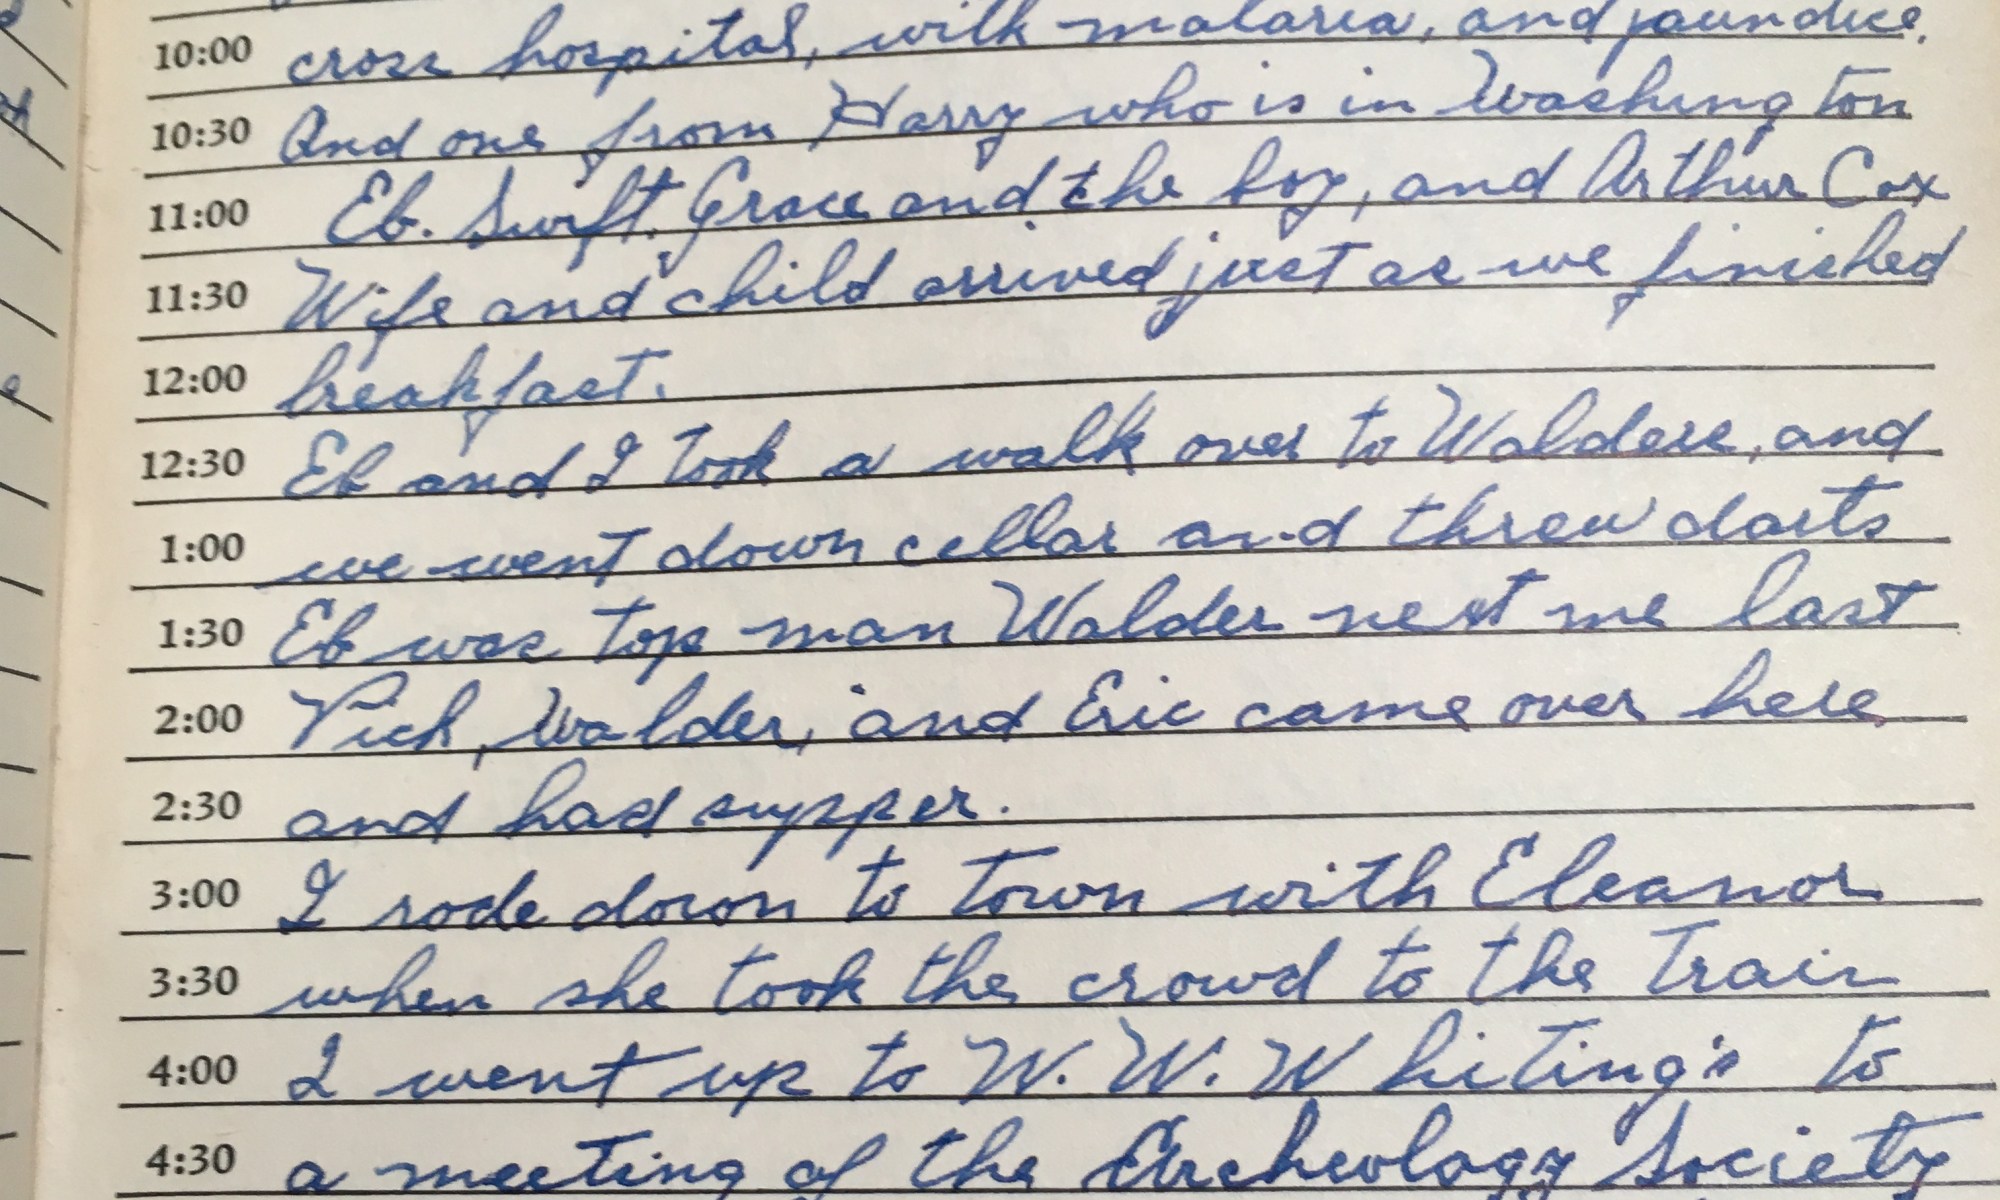 10:00 cross hospital, with malaria, and jaundice.
10:30 And one from Harry who is in Washington
11:00 Eb. Swift, Grace and the boy, and Arthur Cox
11:30 Wife and child arrived just as we finished
12:00 breakfast.
12:30 Eb and I took a walk over to Walders, and
1:00 we went down cellar and threw darts
1:30 Eb was top man Walder next me last
2:00 Vich, Walder, and Eric came over here
2:30 and had supper.
3:00 I rode down to town with Eleanor
3:30 when she took the crowd to the train
4:00 I went up to W. W. Whiting's to
4:30 a meeting of the Archeology Society